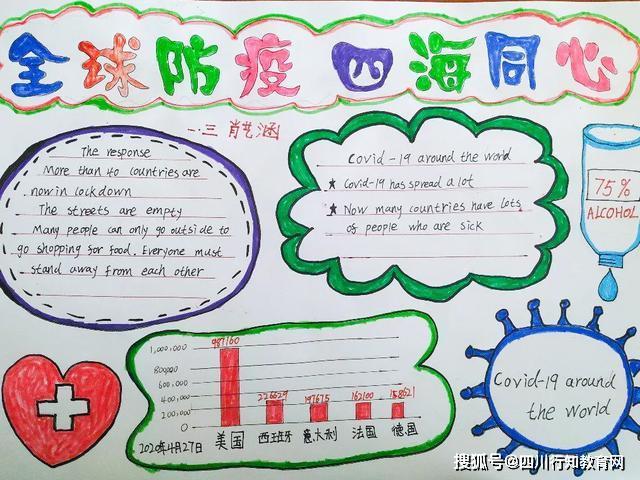 全球防疫 四海同心
一·三 肖艺涵
The response
More than 40 countries are
now in lockdown
The streets are empty
Many people can only go outside to
go shopping for food. Everyone must
stand away from each other
Covid-19 around the world
★ Covid-19 has spread a lot
★ Now many countries have lots
of people who are sick
75%
ALCOHOL
987160
1,000,000
800000
600,000
400,000
200,000
0
226629
197675
162100
美国
西班牙
意大利
法国
德国
2020年4月27日
Covid-19 around
the world
搜狐号@四川行知教育网